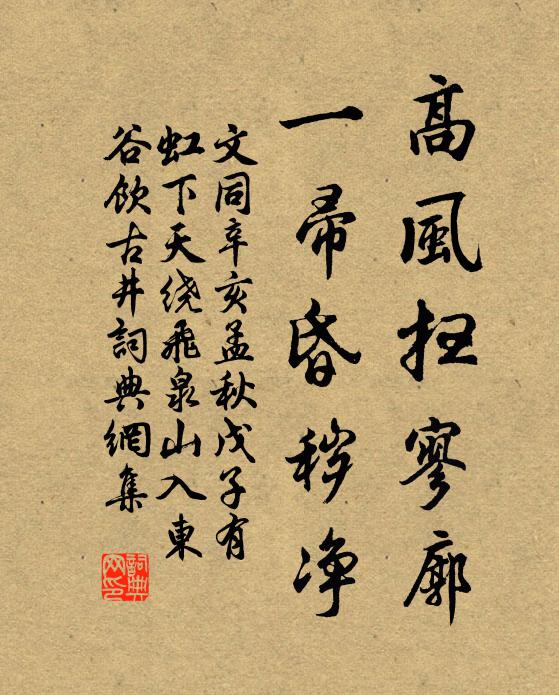 高風扫寥廓
一帚昏秽净
文同辛亥孟秋戊子有
虹下天绕飛泉山入東
谷饮古井詞典網集
詞典网印